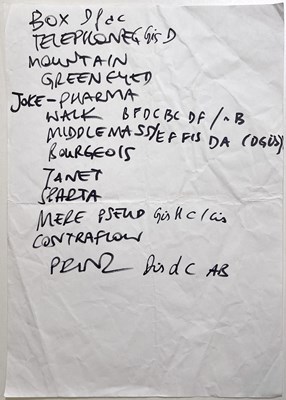 BOX D/dc
TELEPHONE G Gis D
MOUNTAIN
GREENEYED
JOKE-PHARMA
WALK BFDCBC DF/AB
MIDDLEMASS/EF FIS DA (DGIS)
BOURGEOIS
JANET
SPARTA
MERE PSEUD Gis H C/Cis
CONTRAFLOW
PRINZ Dis d C AB